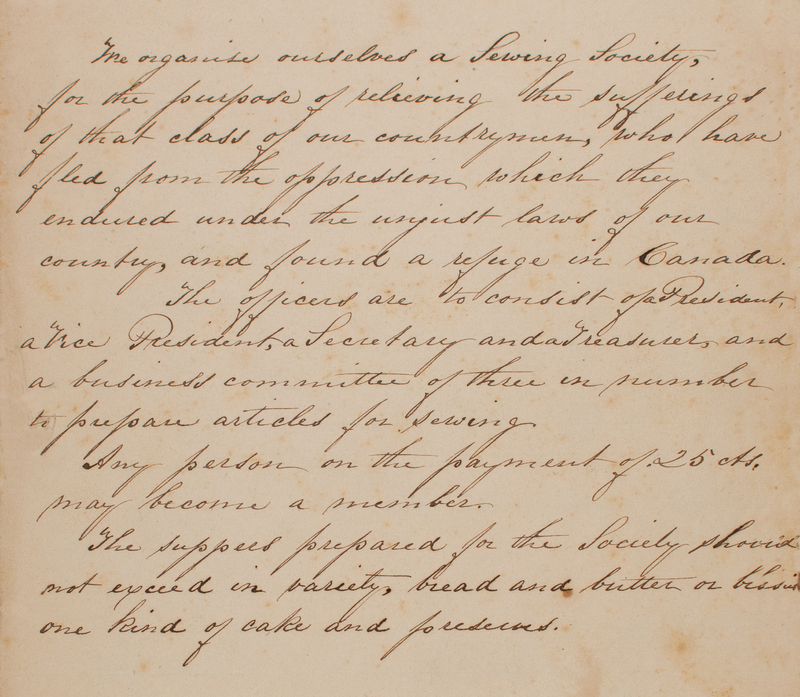 We organise ourselves a Sewing Society,
for the purpose of relieving the sufferings
of that class of our countrymen, who have
fled from the oppression which they
endured under the unjust laws of our
country, and found a refuge in Canada.
The officers are to consist of a President,
a Vice President, a Secretary and a Treasurer, and
a business committee of three in number
to prepare articles for sewing
Any person on the payment of .25 cts.
may become a member.
The suppers prepared for the Society should
not exceed in variety, bread and butter or
one kind of cake and preserves.